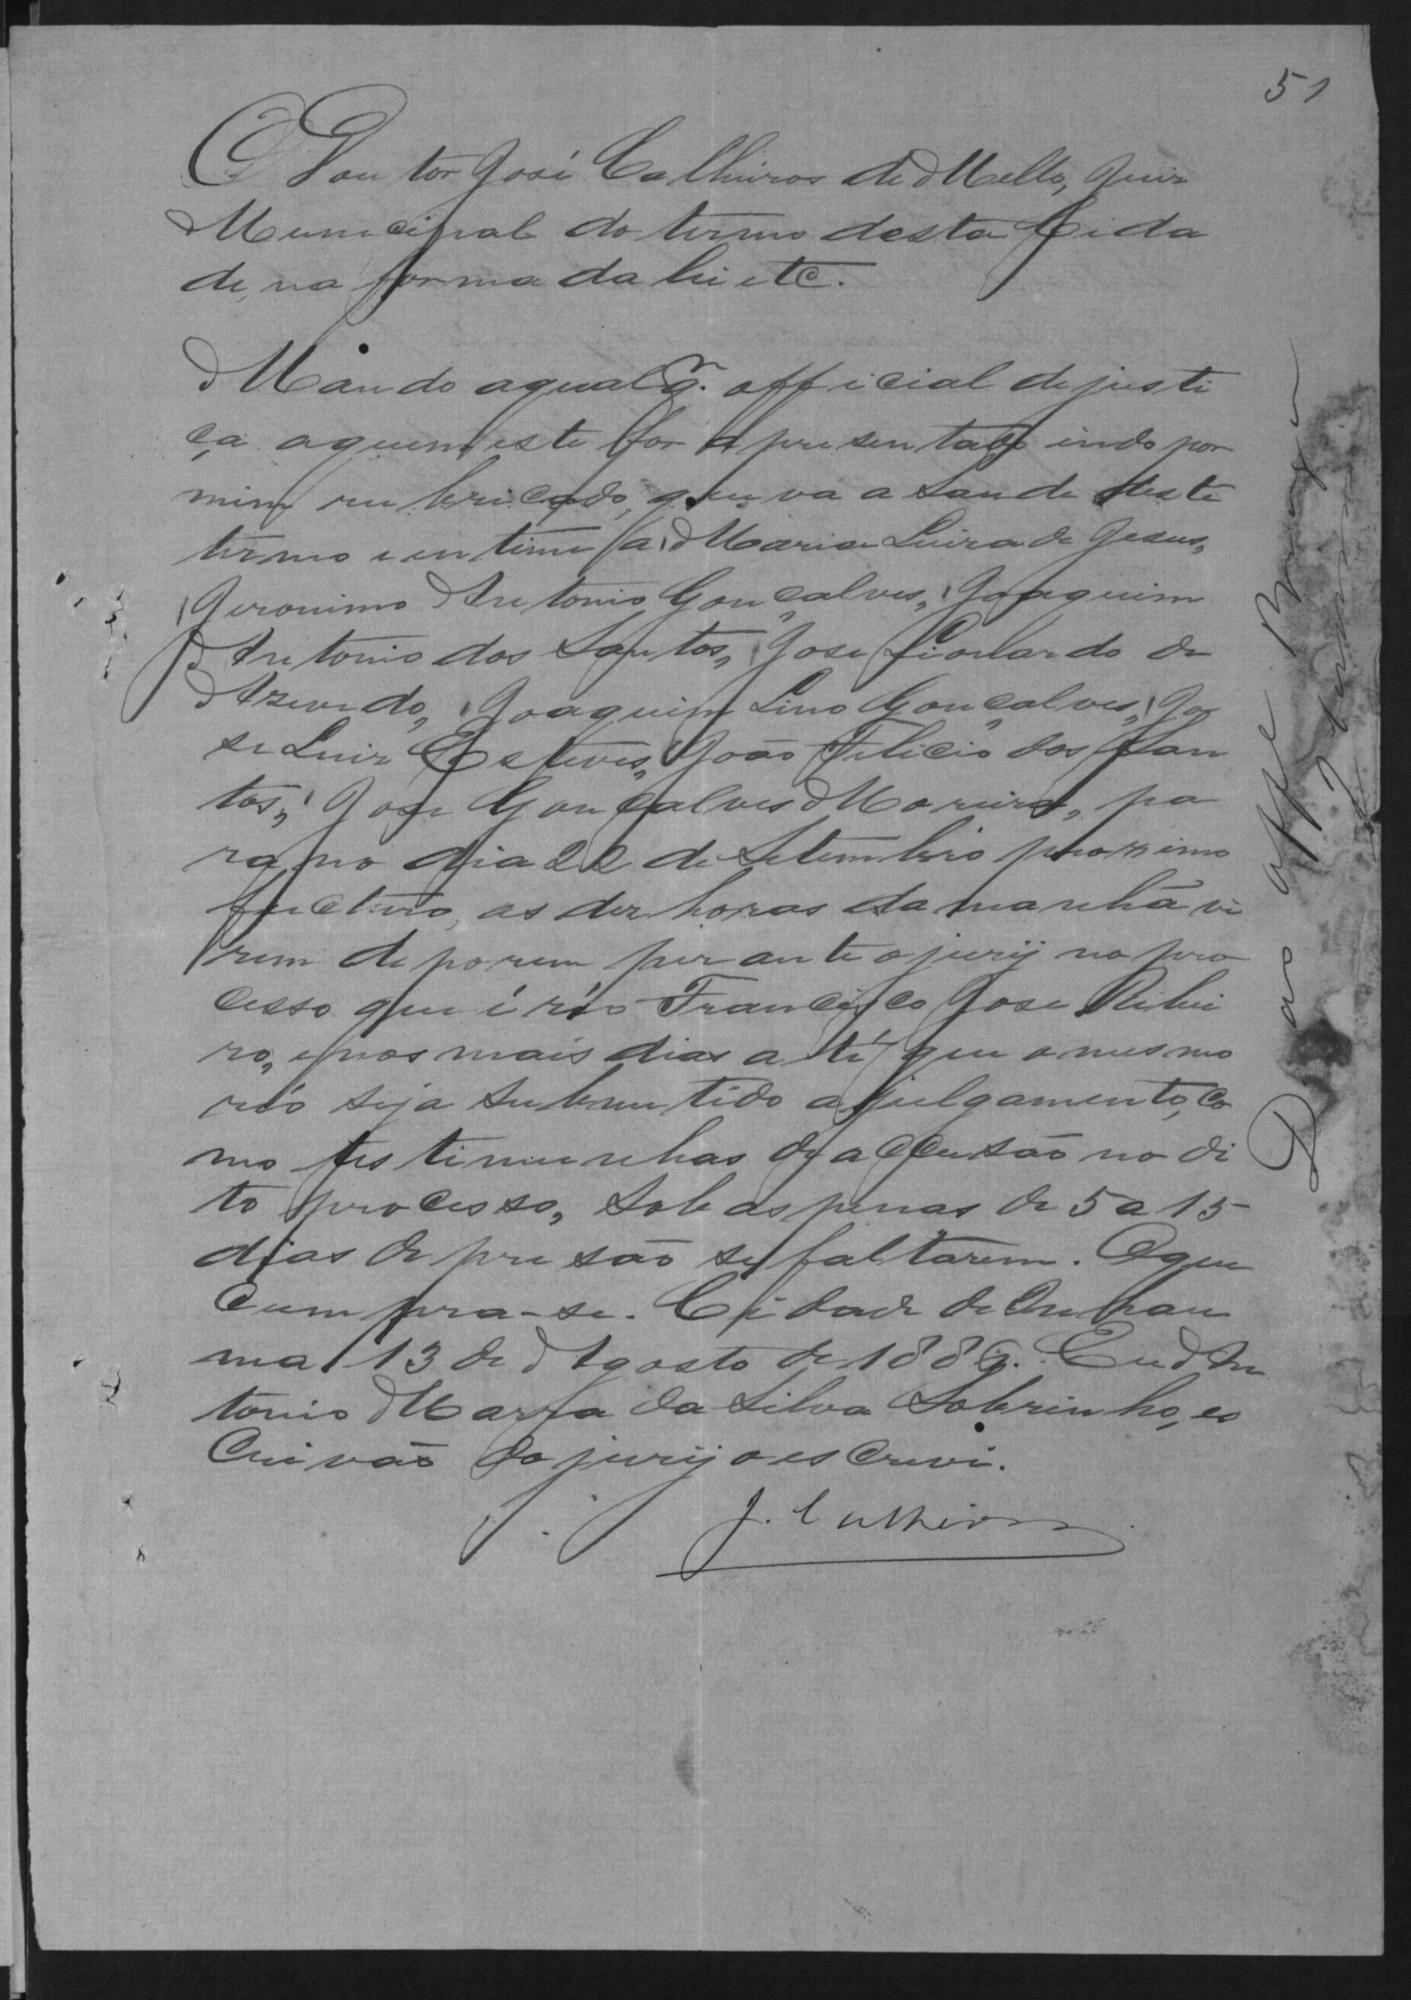 51
O Doutor José Calheiros de Mello, Juiz
Municipal do termo desta Cida
de, na forma da lei etc.
Mando a qualqr. official de justi
ça a quem este for apresentado indo por
mim rubricado, que va a Saude deste
termo e intime a Maria Luiza de Jesus,
Geronimo Antonio Gonçalves, Joaquim
Antonio dos Santos, Jose Lionardo de
Azevedo, Joaquim Lino Gonçalves, Jo
se Luiz Esteves, João Felicio dos San
tos, Jose Gonçalves Moreira, pa
ra no dia 22 de Setembro proximo
fucturo, as dez horas da manhã vi
rem deporem perante o jury no pro
cesso que é réo Francisco Jose Ribei
ro, e nos mais dias até que o mesmo
réo seja submettido a julgamento, co
mo testimunhas de accusão no di
to processo, sob as penas de 5 a 15
dias de prisão se faltarem. O que
Cumpra-se. Cidade de
ma 13 de Agosto de 1886. Eu An
tonio Marra da Silva Sobrinho, es
crivão do jury o escrevi.
J. Calheiros
Dão offe Braga